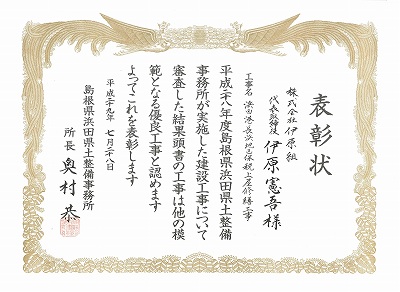 表彰状
株式会社 伊原組
代表取締役 伊原憲吾様
工事名 浜田港長浜地区保税上屋修繕工事
平成二八年度島根県浜田県土整備
事務所が実施した建設工事について
審査した結果頭書の工事は他の模
範となる優良工事と認めます
よってこれを表彰します
平成二九年 七月二八日
島根県浜田県土整備事務所
所長 奥村 恭